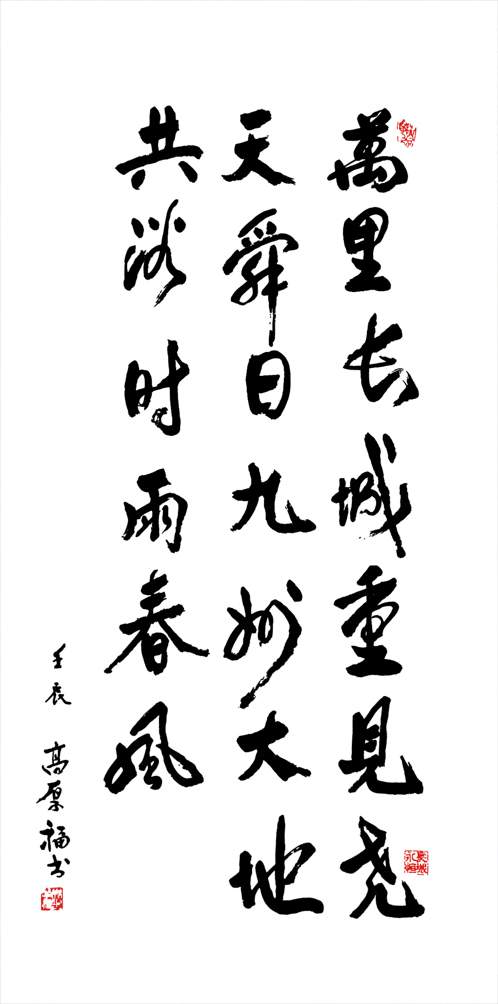 萬里长城重見尧
天舜日九州大地
共浴时雨春風
壬辰 高原福书